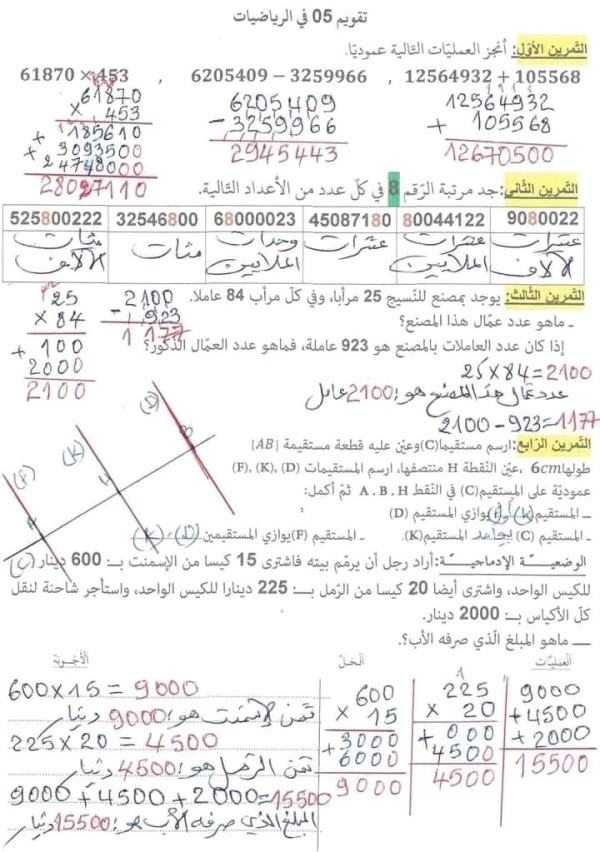 تقويم 05 في الرياضيات
التمرين الأول: أنجز العمليّات التّالية عموديّا.
61870 × 453 , 6205409 − 3259966 , 12564932 + 105568
61870
× 453
+ 185610
+ 3093500
24748000
28027110
6205409
− 3259966
2945443
12564932
+ 105568
12670500
التمرين الثاني: جد مرتبة الرّقم 8 في كلّ عدد من الأعداد التّالية.
525800222 32546800 68000023 45087180 80044122 9080022
مئات الآلاف
مئات
وحدات الملايين
عشرات
عشرات الملايين
عشرات الآلاف
التمرين الثالث: يوجد بمصنع للنّسيج 25 مرأبا، وفي كلّ مرأب 84 عاملا.
ـ ماهو عدد عمّال هذا المصنع؟
إذا كان عدد العاملات بالمصنع هو 923 عاملة، فماهو عدد العمّال الذّكور؟
25
× 84
+ 100
2000
2100
2100
− 923
1177
25 × 84 = 2100
عدد عمال هذا المصنع هو: 2100 عامل
2100 − 923 = 1177
التمرين الرابع: ارسم مستقيما (C) وعيّن عليه قطعة مستقيمة [AB]
طولها 6cm، عيّن النّقطة H منتصفها، ارسم المستقيمات (D) ,(K) ,(F)
عموديّة على المستقيم (C) في النّقط A . B . H ثمّ أكمل:
ـ المستقيم (K) أو (F) يوازي المستقيم (D)
ـ المستقيم (C) يعامد المستقيم (K). ـ المستقيم (F) يوازي المستقيمين (D) ، (K)
(F)
(K)
(D)
A
H
B
(C)
الوضعية الإدماجية: أراد رجل أن يرمّم بيته فاشترى 15 كيسا من الإسمنت بـ: 600 دينار
للكيس الواحد، واشترى أيضا 20 كيسا من الرّمل بـ: 225 دينارا للكيس الواحد، واستأجر شاحنة لنقل
كلّ الأكياس بـ: 2000 دينار.
ـ ماهو المبلغ الّذي صرفه الأب؟.
العمليّات
الحل
الأجوبة
600 × 15 = 9000
ثمن الإسمنت هو: 9000 دينار
225 × 20 = 4500
ثمن الرمل هو: 4500 دينار
9000 + 4500 + 2000 = 15500
المبلغ الذي صرفه الأب هو: 15500 دينار
600
× 15
+ 3000
6000
9000
225
× 20
+ 000
4500
4500
9000
+ 4500
+ 2000
15500